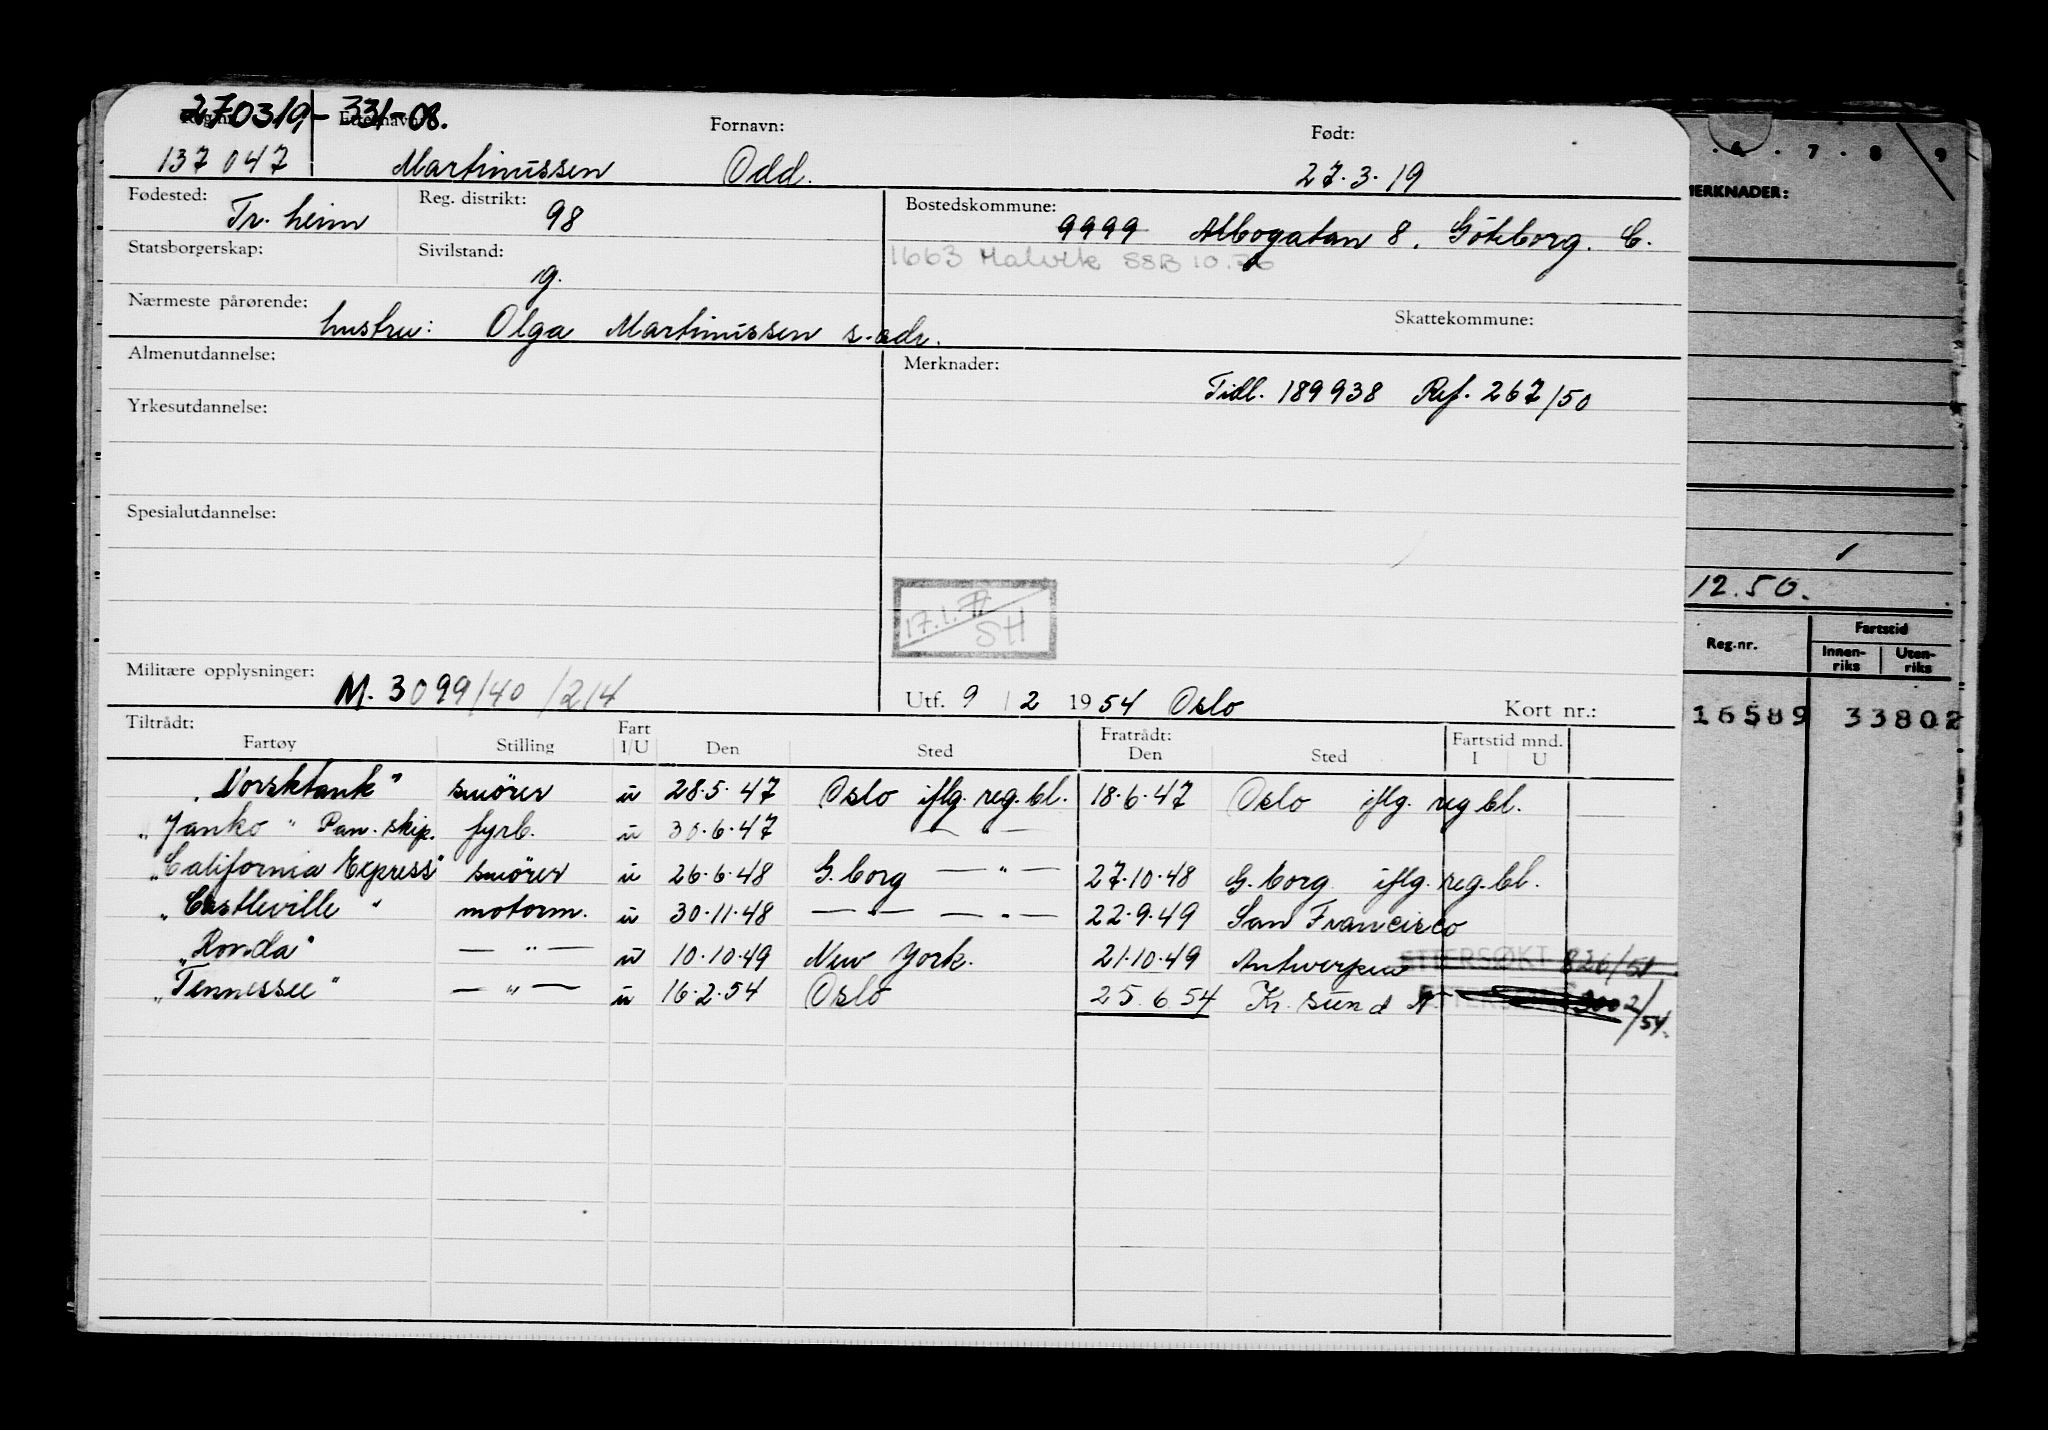 270319-331-08.
Fornavn: Født:
137047 Martinussen Odd. 27.3.19
Fødested: Tr.heim Reg. distrikt: 98 Bostedskommune: 9999 Albogatan 8, Göteborg. C.
Statsborgerskap: Sivilstand: g. 1663 Malvik SSB 10.76
Nærmeste pårørende: hustru: Olga Martinussen s. adr. Skattekommune:
Almenutdannelse: Merknader:
Tidl. 189938 Ref. 267/50
Yrkesutdannelse:
Spesialutdannelse:
17.1.77 SH
Militære opplysninger: M. 3099/40/214 Utf. 9/2 1954 Oslo Kort nr.:
Tiltrådt: Fratrådt:
Fartøy Stilling Fart I/U Den Sted Den Sted Fartstid mnd. I U
"Norsktank" smörer u 28.5.47 Oslo iflg. reg.bl. 18.6.47 Oslo iflg. reg bl.
"Janko" Pan. skip. fyrb. u 30.6.47 — " —
"California Express" smörer u 26.6.48 G.borg — " — 27.10.48 G.borg iflg. reg.bl.
"Castleville" motorm. u 30.11.48 — " — — " — 22.9.49 San Francisco
"Ronda" — " — u 10.10.49 New York. 21.10.49 Antwerpen ETTERSØKT 826/51
"Tennessee" — " — u 16.2.54 Oslo 25.6.54 Kr. sund N.
6 . 7 . 8 9
MERKNADER:
12.50.
Reg.nr. Fartstid
Innen-riks Uten-riks
16589 33802